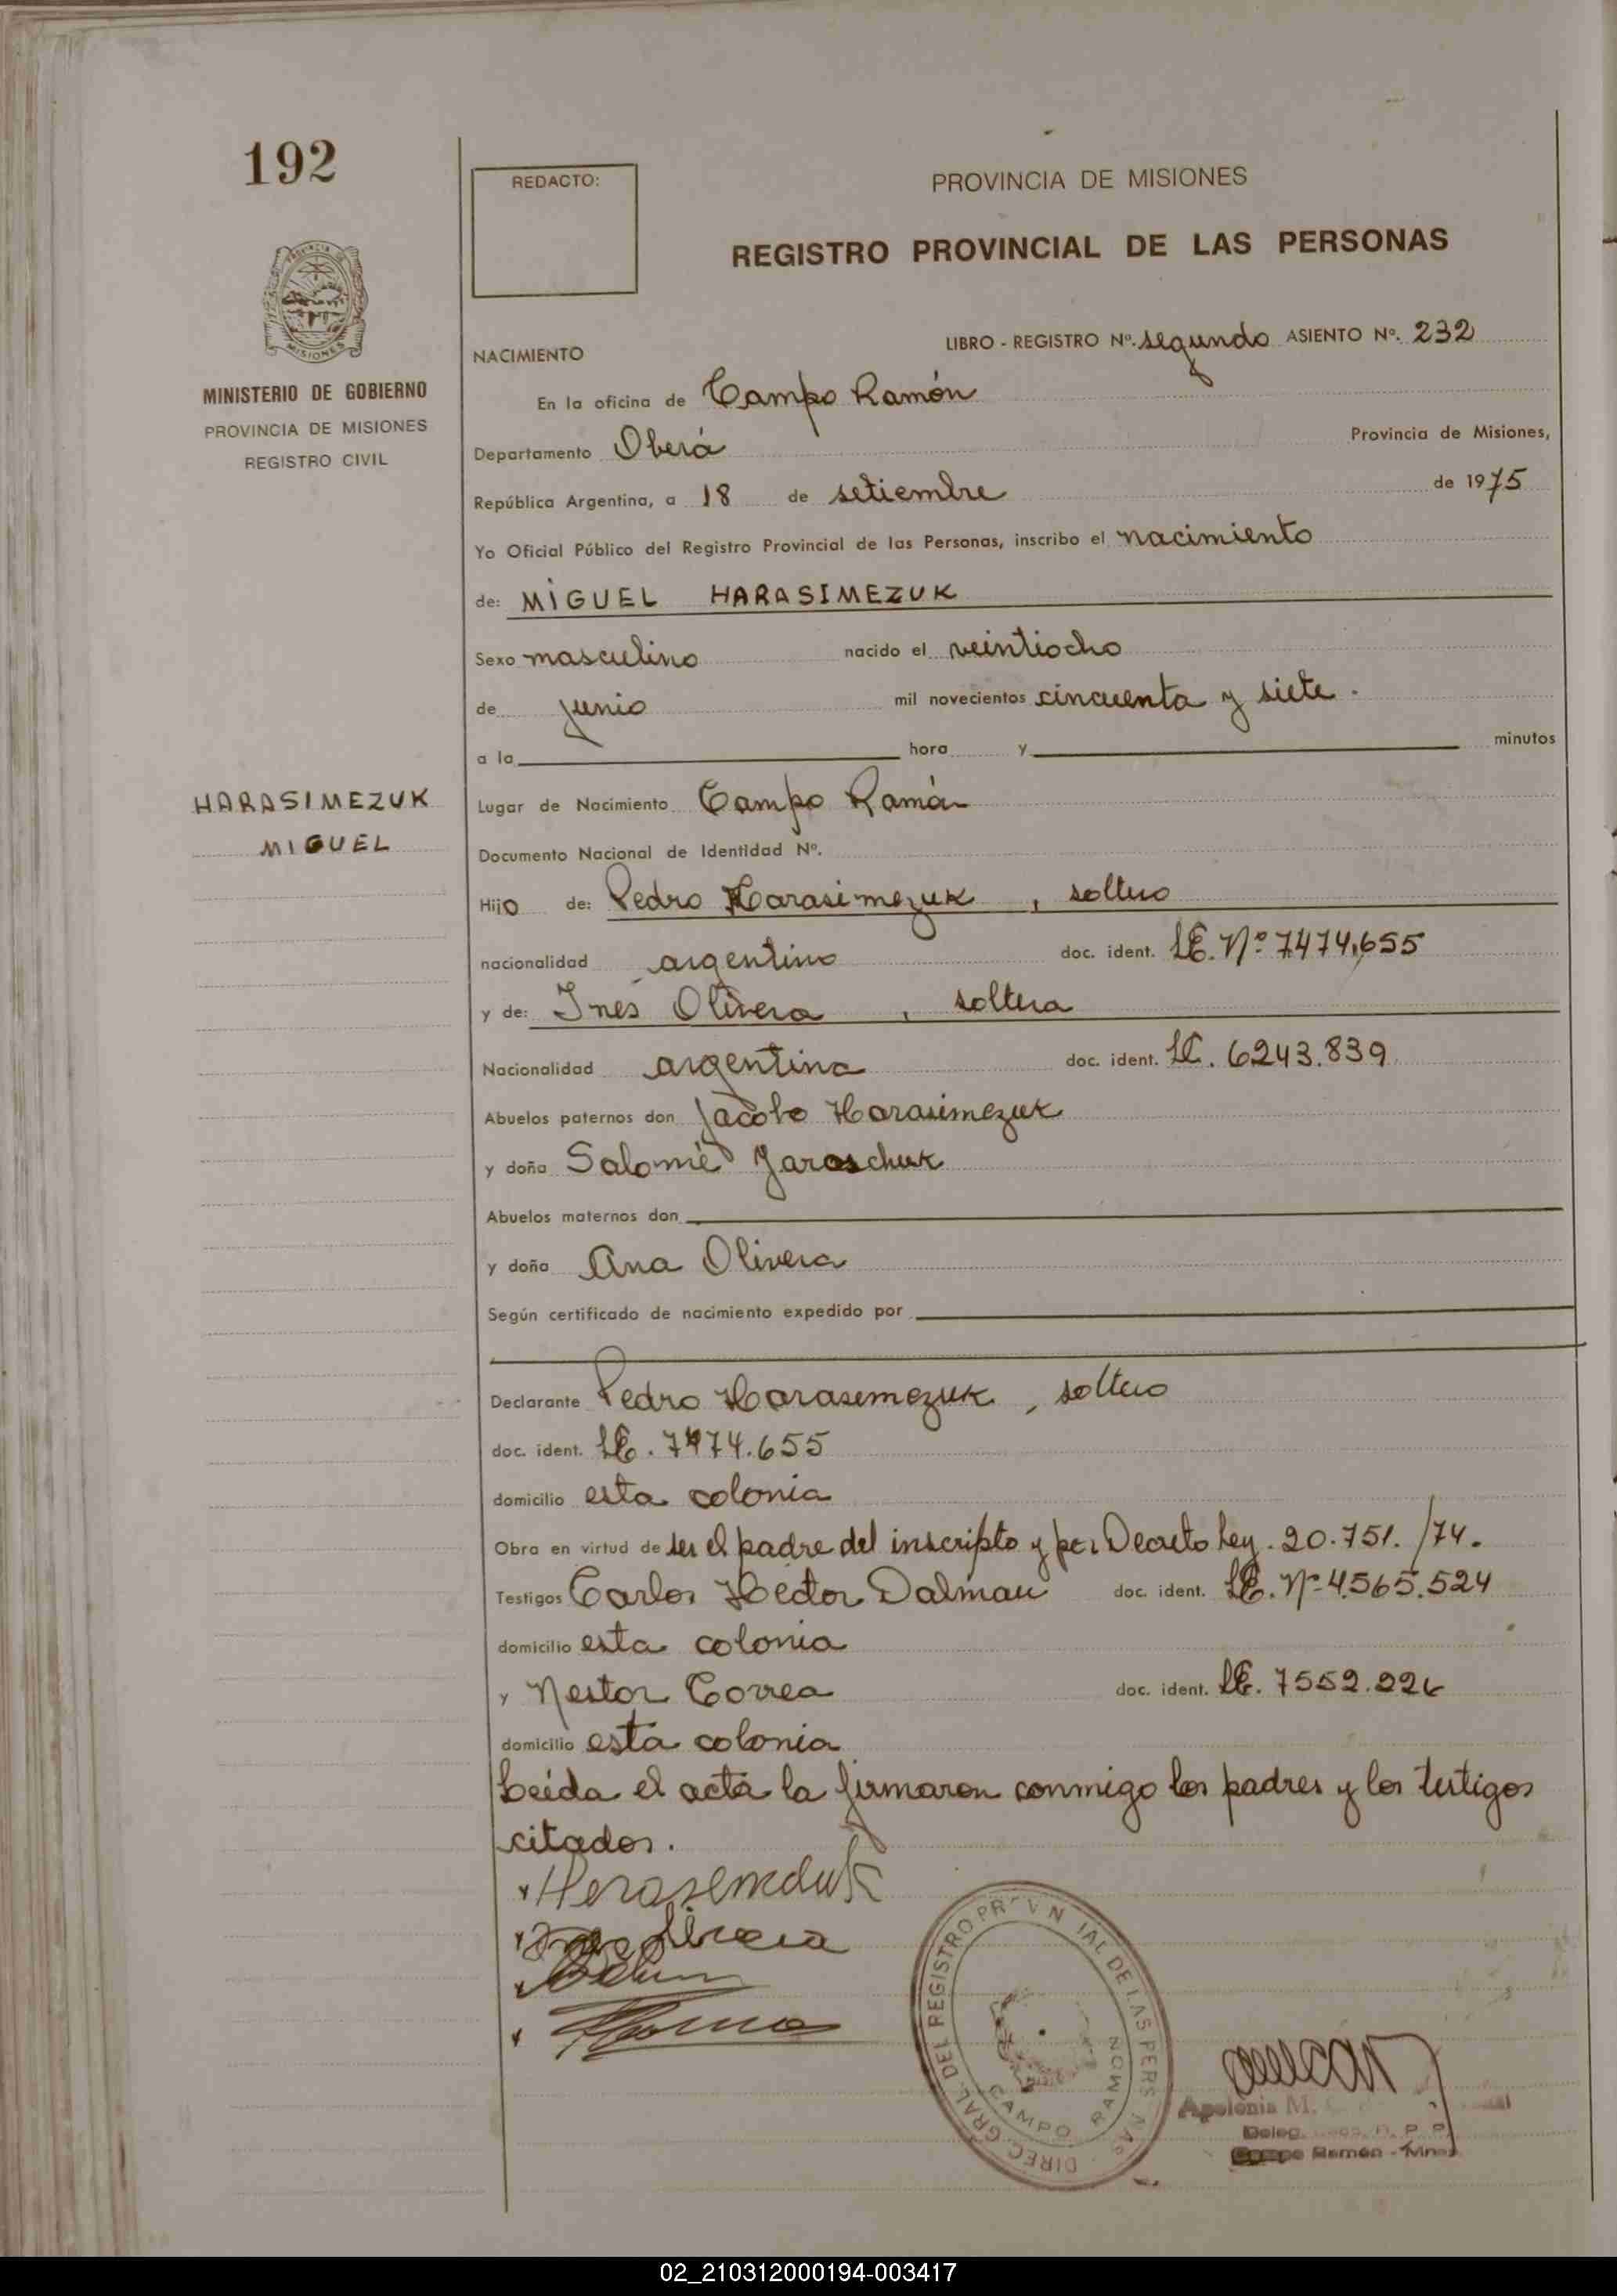 192
REDACTO:
PROVINCIA DE MISIONES
REGISTRO PROVINCIAL DE LAS PERSONAS
PROVINCIA DE
MISIONES
MINISTERIO DE GOBIERNO
PROVINCIA DE MISIONES
REGISTRO CIVIL
NACIMIENTO
LIBRO - REGISTRO Nº. segundo ASIENTO Nº. 232
En la oficina de Campo Ramón
Departamento Oberá Provincia de Misiones,
República Argentina, a 18 de setiembre de 1975
Yo Oficial Público del Registro Provincial de las Personas, inscribo el nacimiento
de: MIGUEL HARASIMEZUK
Sexo masculino nacido el veintiocho
de junio mil novecientos cincuenta y siete.
a la hora y minutos
HARASIMEZUK
MIGUEL
Lugar de Nacimiento Campo Ramón
Documento Nacional de Identidad Nº.
Hijo de: Pedro Harasimezuk, soltero
nacionalidad argentino doc. ident. LE. Nº 7.474.655
y de: Inés Olivera, soltera
Nacionalidad argentina doc. ident. LC. 6243.839
Abuelos paternos don Jacobo Harasimezuk
y doña Salomé Jaroschuk
Abuelos maternos don
y doña Ana Olivera
Según certificado de nacimiento expedido por
Declarante Pedro Harasemezuk, soltero
doc. ident. LE. 7474.655
domicilio esta colonia
Obra en virtud de ser el padre del inscripto y por Decreto Ley. 20.751./74.
Testigos Carlos Héctor Dalmau doc. ident. LE. Nº 4.565.524
domicilio esta colonia
y Nestor Correa doc. ident. LE. 7552.226
domicilio esta colonia
Leída el acta la firmaron conmigo los padres y los testigos
citados.
DIREC. GRAL. DEL REGISTRO PR V N IAL DE LAS PERS NAS
CAMPO RAMON
Apolonia M.
Deleg. R. P. P.
Campo Ramón - Mnes
02_210312000194-003417